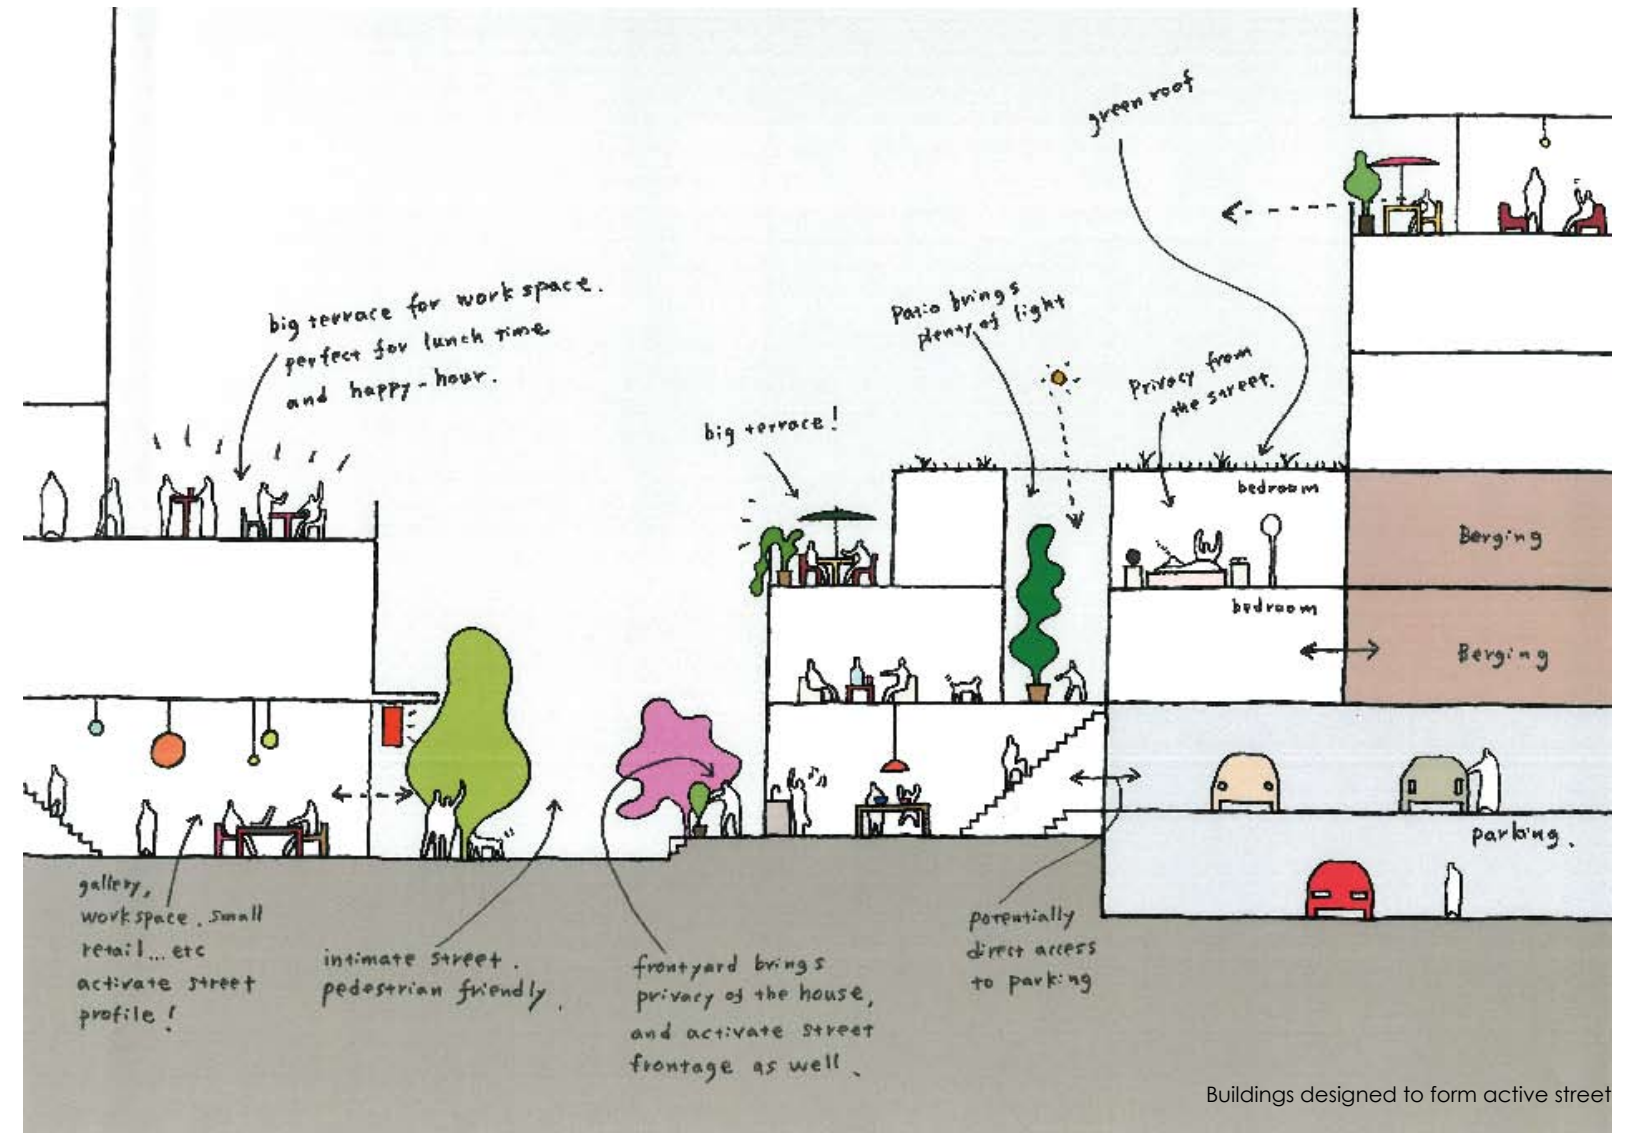 green roof
big terrace for work space.
perfect for lunch time
and happy-hour.
Patio brings
plenty of light
Privacy from
the street.
big terrace!
bedroom
Berging
bedroom
Berging
parking.
gallery,
workspace. small
retail... etc
activate street
profile!
intimate street.
pedestrian friendly.
frontyard brings
privacy of the house,
and activate street
frontage as well.
potentially
direct access
to parking
Buildings designed to form active street